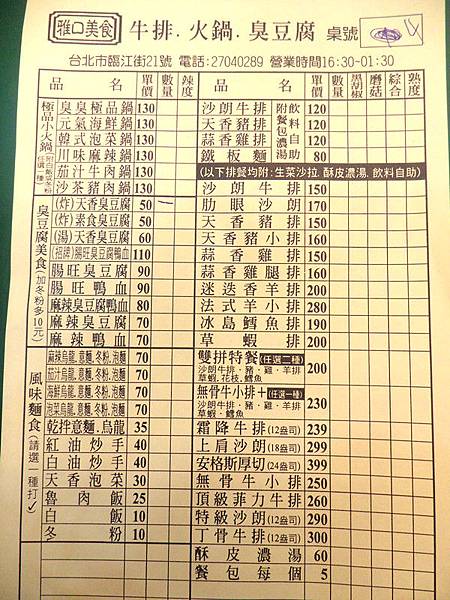 雅口美食 牛排.火鍋.臭豆腐 桌號
台北市臨江街21號 電話:27040289 營業時間16:30~01:30
品名 單價 數量 辣度
極品小火鍋
臭臭極品鍋 130
元氣海鮮鍋 130
韓式泡菜鍋 130
川味麻辣鍋 130
茄汁牛肉鍋 130
沙茶豬肉鍋 130
臭豆腐美食(加冬粉多10元)
(炸)天香臭豆腐 50
(炸)素食臭豆腐 50
(湯)天香臭豆腐 60
(招牌)腸旺臭豆腐鴨血 110
腸旺臭豆腐 90
腸旺鴨血 90
麻辣臭豆腐鴨血 80
麻辣臭豆腐 70
麻辣鴨血 70
風味麵食(請選一種打✓)
麻辣烏龍.意麵.冬粉.泡麵 70
茄汁烏龍.意麵.冬粉.泡麵 70
海鮮烏龍.意麵.冬粉.泡麵 70
泡菜烏龍.意麵.冬粉.泡麵 70
乾拌意麵.烏龍 35
紅油炒手 40
白油炒手 40
天香泡菜 30
魯肉飯 25
白飯 10
冬粉 10
品名 單價 數量 黑胡椒 磨菇 綜合 熟度
沙朗牛排 120
天香豬排 120
蒜香雞排 120
鐵板麵 80
附餐包濃湯 飲料自助
(以下排餐均附:生菜沙拉.酥皮濃湯.飲料自助)
沙朗牛排 150
肋眼沙朗 170
天香豬排 150
天香豬小排 160
蒜香雞排 150
蒜香雞腿排 160
迷迭香羊排 200
法式羊小排 280
冰島鱈魚排 190
草蝦排 200
雙拼特餐(任選二種) 200
沙朗牛排.豬.雞.羊排
草蝦.花枝.鱈魚
無骨牛小排+(任選一種) 230
沙朗牛排.豬.雞.羊排
草蝦.鱈魚
霜降牛排(12盎司) 239
上肩沙朗(18盎司) 299
安格斯厚切(24盎司) 399
無骨牛小排 250
頂級菲力牛排 260
特級沙朗(12盎司) 290
丁骨牛排(12盎司) 300
酥皮濃湯 60
餐包每個 5